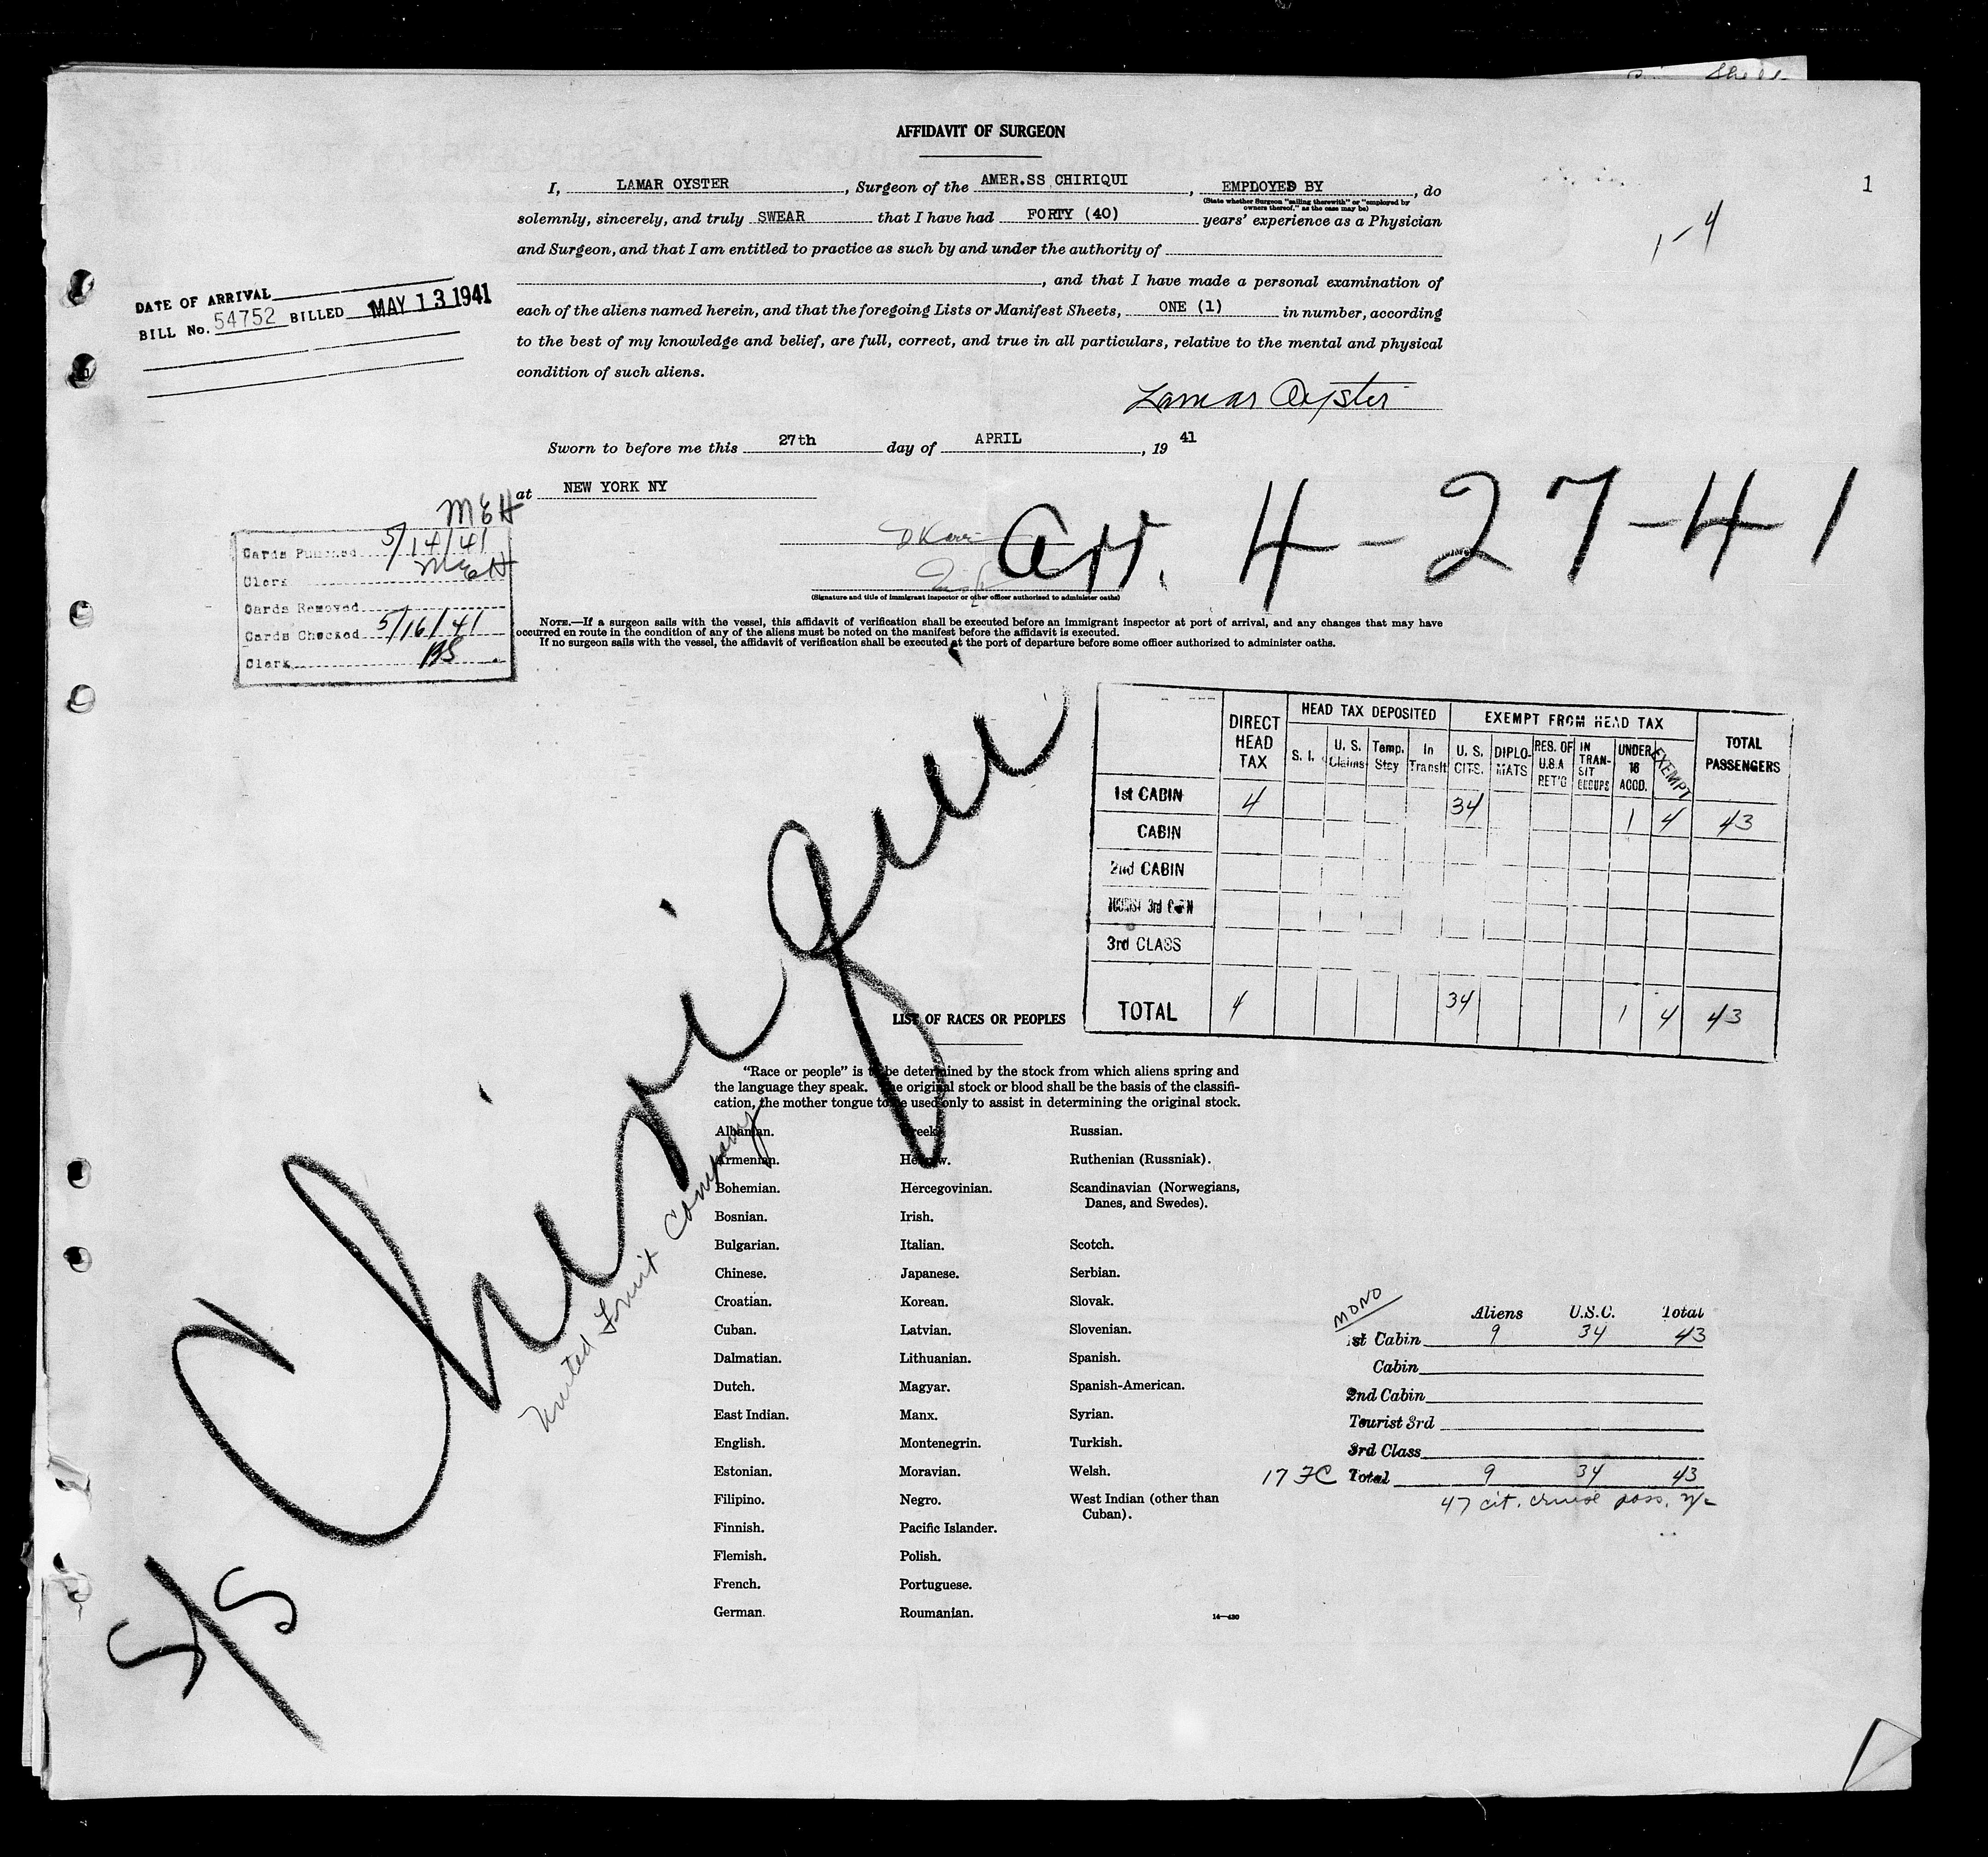 AFFIDAVIT OF SURGEON
1
I, LAMAR OYSTER, Surgeon of the AMER.SS CHIRIQUI, EMPLOYED BY, do
(State whether Surgeon "sailing therewith" or "employed by
owners thereof," as the case may be)
solemnly, sincerely, and truly SWEAR that I have had FORTY (40) years' experience as a Physician
1-4
and Surgeon, and that I am entitled to practice as such by and under the authority of
, and that I have made a personal examination of
each of the aliens named herein, and that the foregoing Lists or Manifest Sheets, ONE (1) in number, according
to the best of my knowledge and belief, are full, correct, and true in all particulars, relative to the mental and physical
condition of such aliens.
Lamar Oyster
DATE OF ARRIVAL
BILL No. 54752 BILLED MAY 13 1941
Sworn to before me this 27th day of APRIL, 19 41
at NEW YORK NY
arr. 4-27-41
(Signature and title of immigrant inspector or other officer authorized to administer oaths)
MEH
Cards Punched 5/14/41
Clerk MEH
Cards Removed
Cards Checked 5/16/41
Clerk BS
NOTE.—If a surgeon sails with the vessel, this affidavit of verification shall be executed before an immigrant inspector at port of arrival, and any changes that may have
occurred en route in the condition of any of the aliens must be noted on the manifest before the affidavit is executed.
If no surgeon sails with the vessel, the affidavit of verification shall be executed at the port of departure before some officer authorized to administer oaths.
DIRECT HEAD TAX HEAD TAX DEPOSITED EXEMPT FROM HEAD TAX TOTAL PASSENGERS
S. I. U. S. Claims Temp. Stay In Transit U. S. CITS. DIPLO-MATS RES. OF U.S.A RET'G IN TRAN-SIT GROUPS UNDER 16 ACCD. EXEMPT
1st CABIN 4 34 1 4 43
CABIN
2nd CABIN
TOURIST 3rd CABIN
3rd CLASS
TOTAL 4 34 1 4 43
S/S Chiriqui
United Fruit Company
LIST OF RACES OR PEOPLES
"Race or people" is to be determined by the stock from which aliens spring and
the language they speak. The original stock or blood shall be the basis of the classifi-
cation, the mother tongue to be used only to assist in determining the original stock.
Albanian.
Armenian.
Bohemian.
Bosnian.
Bulgarian.
Chinese.
Croatian.
Cuban.
Dalmatian.
Dutch.
East Indian.
English.
Estonian.
Filipino.
Finnish.
Flemish.
French.
German.
Greek.
Hebrew.
Hercegovinian.
Irish.
Italian.
Japanese.
Korean.
Latvian.
Lithuanian.
Magyar.
Manx.
Montenegrin.
Moravian.
Negro.
Pacific Islander.
Polish.
Portuguese.
Roumanian.
Russian.
Ruthenian (Russniak).
Scandinavian (Norwegians,
Danes, and Swedes).
Scotch.
Serbian.
Slovak.
Slovenian.
Spanish.
Spanish-American.
Syrian.
Turkish.
Welsh.
West Indian (other than
Cuban).
14—430
MONO
Aliens U.S.C. Total
1st Cabin 9 34 43
Cabin
2nd Cabin
Tourist 3rd
3rd Class
17 FC Total 9 34 43
47 cit. cruise pass.